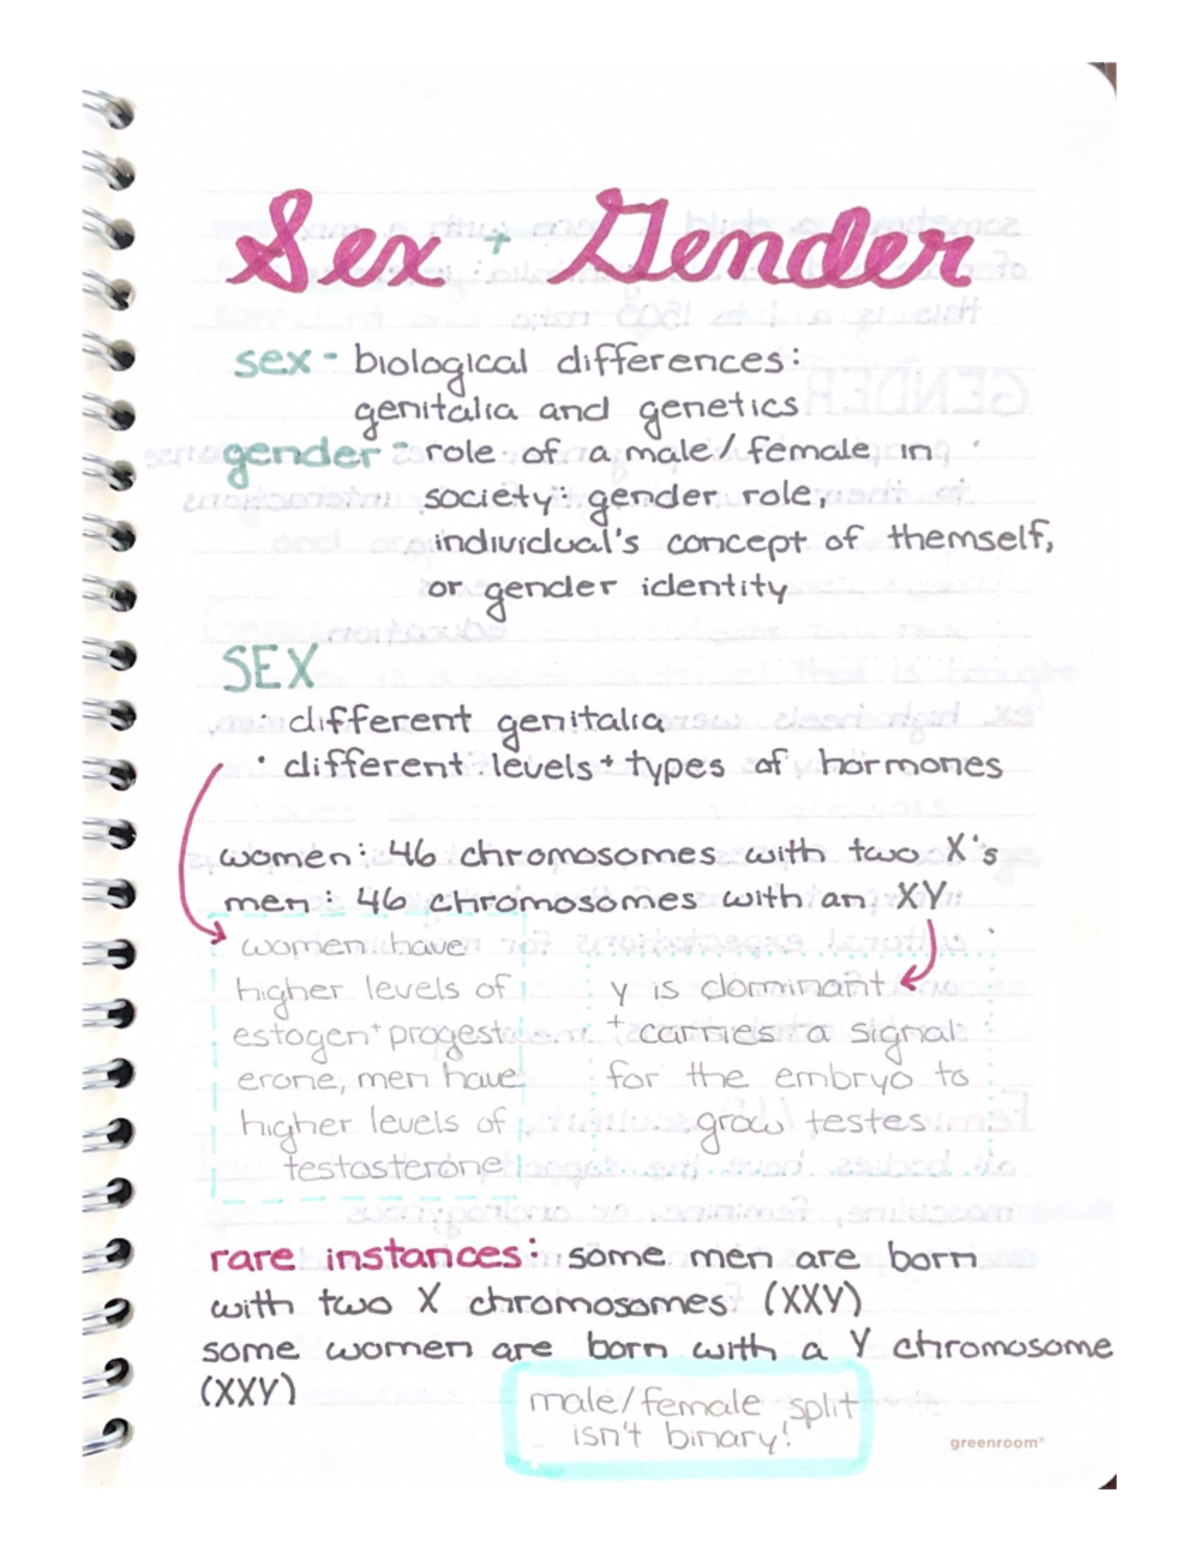 Sex + Gender
sex - biological differences:
genitalia and genetics
gender - role of a male/female in
society: gender role,
individual's concept of themself,
or gender identity
SEX
· different genitalia
· different levels + types of hormones
women: 46 chromosomes with two X's
men: 46 chromosomes with an XY
women have
higher levels of
estogen + progest
erone, men have
higher levels of
testosterone
y is dominant
+ carries a signal
for the embryo to
grow testes
rare instances: some men are born
with two X chromosomes (XXY)
some women are born with a Y chromosome
(XXY)
male/female split
isn't binary!
greenroom